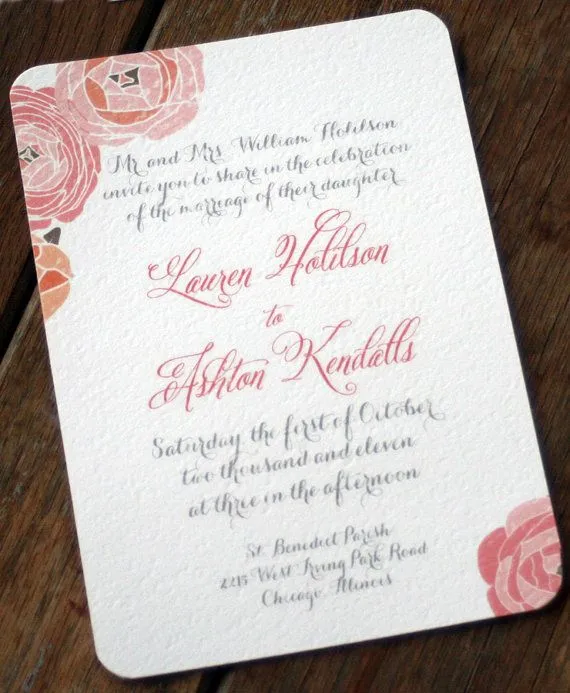 Mr and Mrs William Holilson
invite you to share in the celebration
of the marriage of their daughter
Lauren Holilson
to
Ashton Kendalls
Saturday the first of October
two thousand and eleven
at three in the afternoon
St. Benedict Parish
2215 West Irving Park Road
Chicago, Illinois